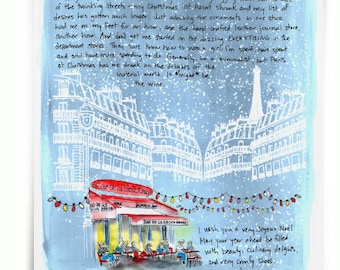 of the twinkling streets - my Christmas list hasn't shrunk and my list of
desires has gotten much longer. Just admiring the ornaments in one store
had me on my feet for an hour, and the hand crafted leather journal store
another hour. And don't get me started on the dazzling EVERYTHING in the
department stores. They sure know how to woo a girl. I'm spent, have spent
and still have more spending to do. Generally, I'm a minimalist but Paris
at Christmas has me drunk on the delights of the
material world. It might be
the wine.
BAR DE LA CROIX ROUGE
I wish you a very Joyeux Noël.
May your year ahead be filled
with beauty, culinary delights,
and very comfy shoes.